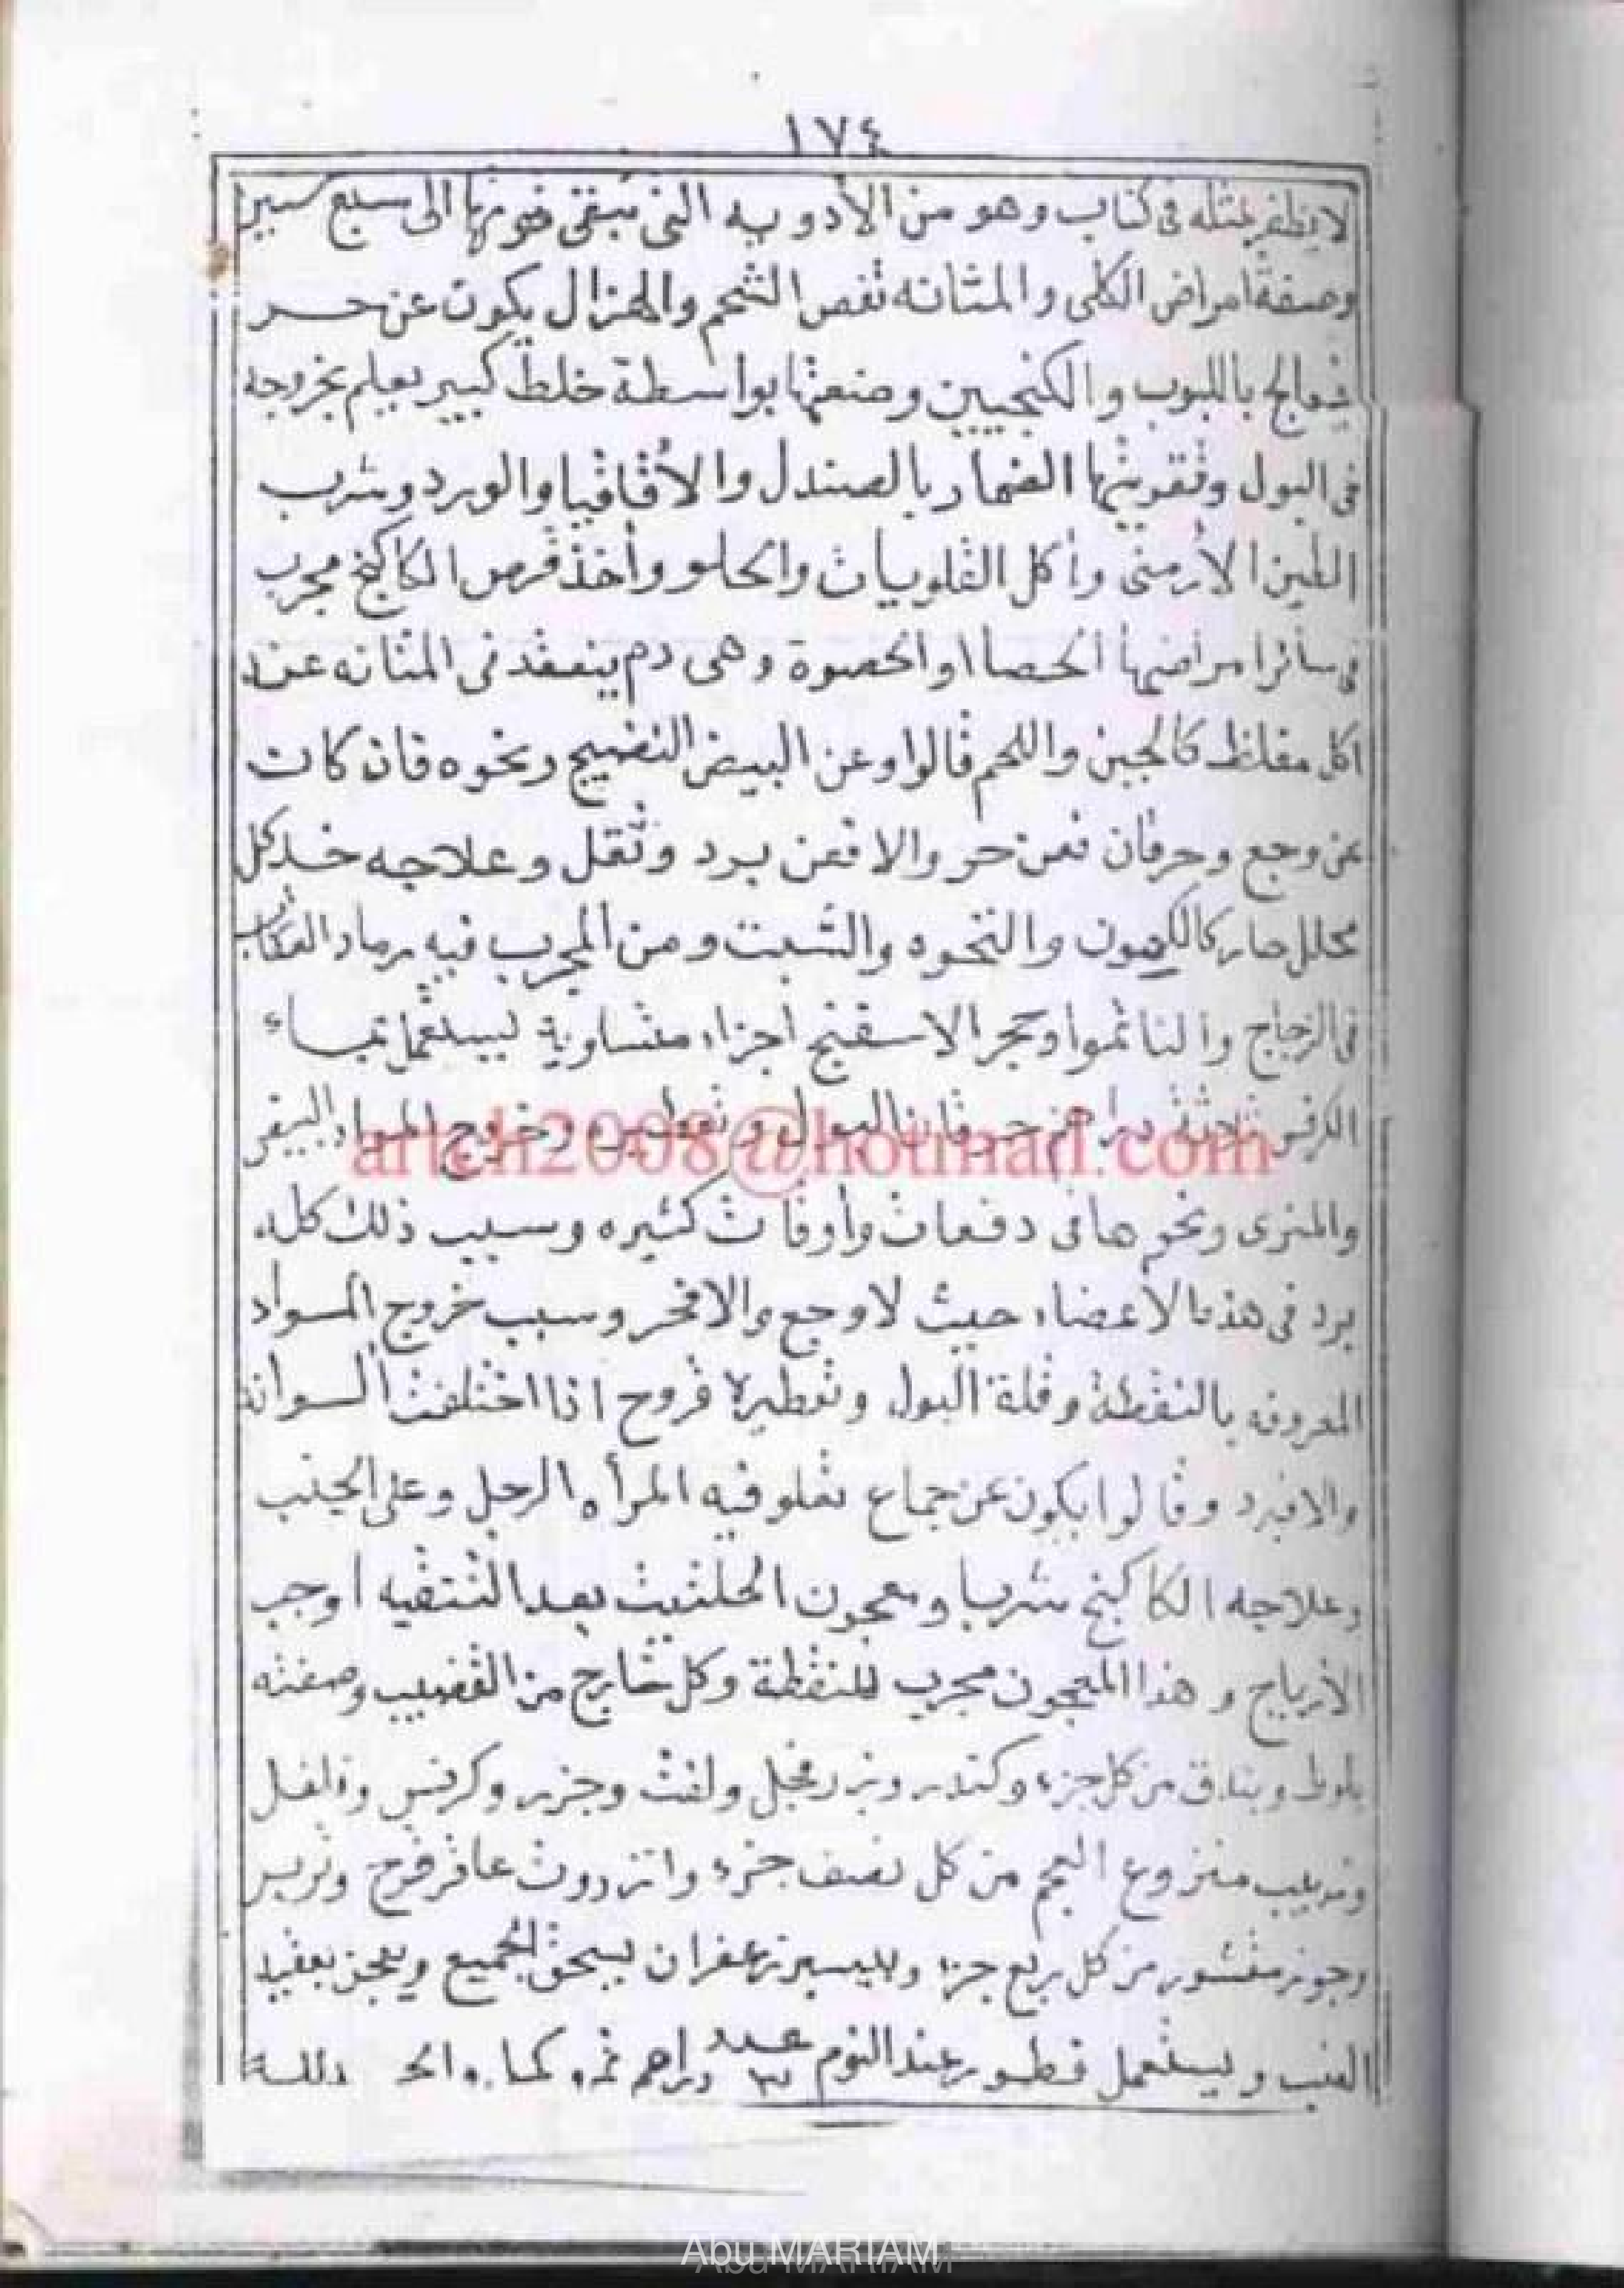 ١٧٤
لا يظفر بمثله فى كتاب وهو من الأدويه التى تبقى قوتها الى سبع سنين
وصفة امراض الكلى والمثانه نقص الشحم والهزال يكون عن حر
فيعالج باللبوب والكنجبين وضعفها بواسطة خلط كبير يعلم بخروجه
فى البول وتقويتها الضماد بالصندل والأقاقيا والورد وشرب
الطين الارمنى وأكل القلوبيات والحلو وأخذ قرص الكاكنج مجرب
فى سائر امراضها الحصا او الحصوة وهى دم ينعقد فى المثانه عند
اكل مغلظ كالجبن واللحم قالوا وعن البيض النضيج ونحوه فان كان
عن وجع وحرقان فعن حر والا فعن برد وثقل وعلاجه خذ كل
محلل حار كالكمون والنخوه والشبت ومن المجرب فيه رماد العقارب
فى الزجاج والنانخوا وحجر الاسفنج أجزاء متساوية ليستعمل بماء
الكرفس ثلاثة دراهم حرقان البول وتقطيره وخروج المواد البيض
والمنزى ونحوها فى دفعات وأوقات كثيره وسبب ذلك كله
برد فى هذه الأعضاء حيث لا وجع والا فحر وسبب خروج المواد
المعروفه بالنقطة وقلة البول وتقطيره قروح اذا اختلفت ألوانه
والا فبرد وقالوا يكون عن جماع تعلو فيه المرأه الرجل وعلى الجنب
وعلاجه الكاكنج شربا ومعجون الحلتيت بعد التنقيه او حب
الأرياج وهذا المعجون مجرب للنقطة وكل خارج من القضيب وصفته
بلوط وبندق من كل جزء وكندر وبزر فجل ولفت وجزر وكرفس وفلفل
وزبيب منزوع العجم من كل نصف جزء وانزروت عاقرقرح وتربس
وجوز مقشور من كل ربع جزء ويسير زعفران يسحق الجميع ويعجن بعقيد
العنب ويستعمل فطور عند النوم عدد ٣ دراهم
arteh2008@hotmail.com
Abu MARIAM